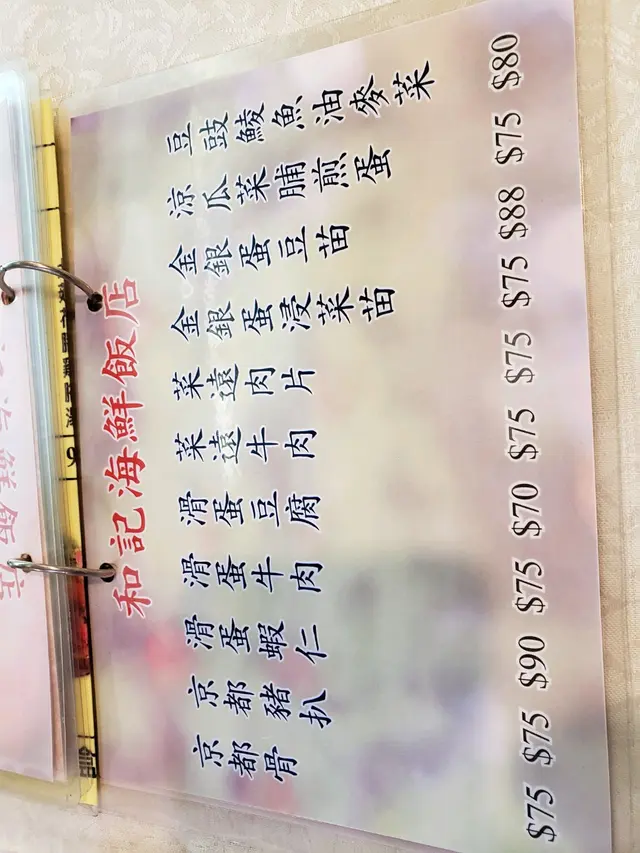 和記海鮮飯店
豆豉鯪魚油麥菜 $80
涼瓜菜脯煎蛋 $75
金銀蛋豆苗 $88
金銀蛋浸菜苗 $75
菜遠肉片 $75
菜遠牛肉 $75
滑蛋豆腐 $70
滑蛋牛肉 $75
滑蛋蝦仁 $90
京都豬扒 $75
京都骨 $75